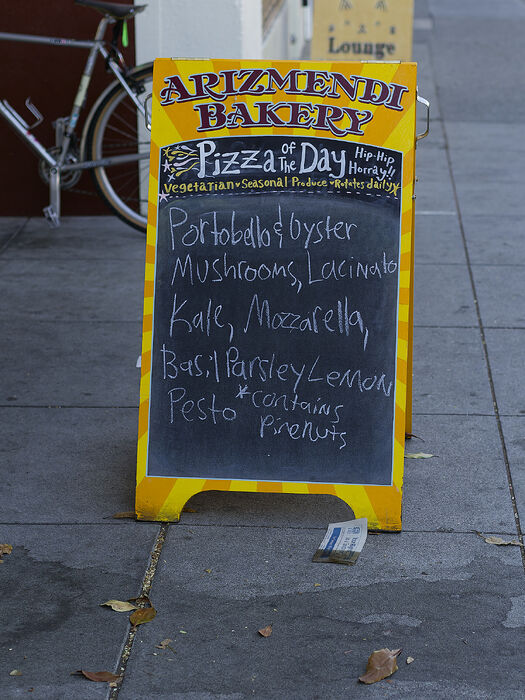 Lounge
ARIZMENDI
BAKERY
Pizza of The Day Hip-Hip Horray!!
Vegetarian • Seasonal Produce • Rotates daily
Portobello & Oyster
Mushrooms, Lacinato
Kale, Mozzarella,
Basil Parsley Lemon
Pesto *contains
Pinenuts